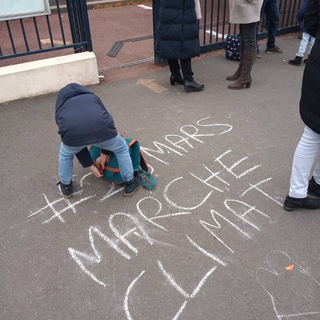 # MARS
MARCHE
CLIMAT